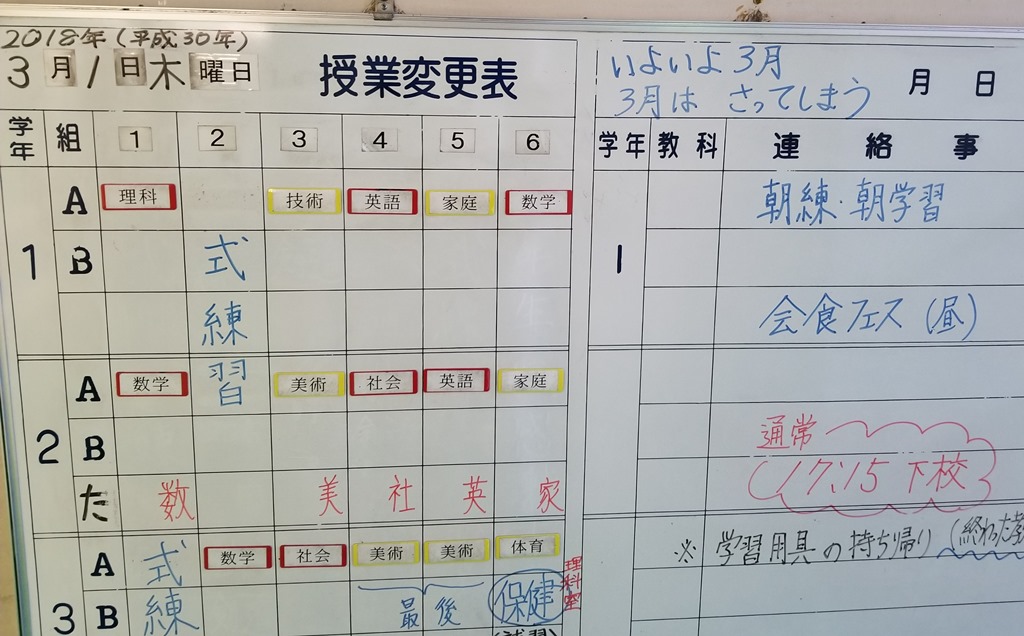 2018年(平成30年)
3月1日木曜日
授業変更表
いよいよ3月
3月は さってしまう
月 日
学年 組 1 2 3 4 5 6
学年 教科 連絡事
1 A 理科 技術 英語 家庭 数学
B
式練習
1
朝練・朝学習
会食フェス(昼)
2 A 数学 美術 社会 英語 家庭
B
た 数 美 社 英 家
通常
17:15 下校
3 A 数学 社会 美術 美術 体育
B
式練
最後
保健
理科室
※ 学習用具の持ち帰り(終わった